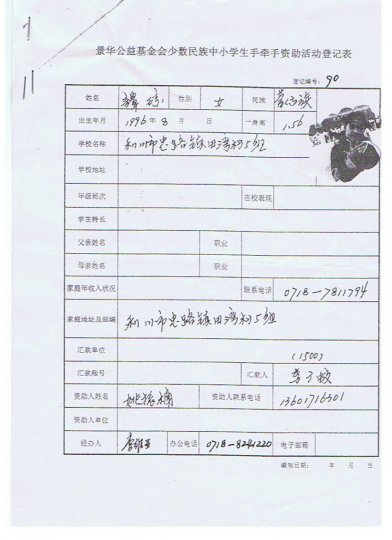 景华公益基金会少数民族中小学生手牵手资助活动登记表
登记编号: 90
姓名 谭婷 性别 女 民族
出生年月 1996年8月 日 身高 1.56
学校名称 利川市忠路镇田湾村5组
学校地址
年级班次 在校表现
学生特长
父亲姓名 职业
母亲姓名 职业
家庭年收入状况 联系电话 0718-7811794
家庭地址及邮编 利川市忠路镇田湾村5组
汇款单位 (1500)
汇款账号 汇款人
资助人姓名 资助人联系电话 13601716301
资助人单位
经办人 办公电话 0718-8241220 电子邮箱
编制日期: 年 月 日